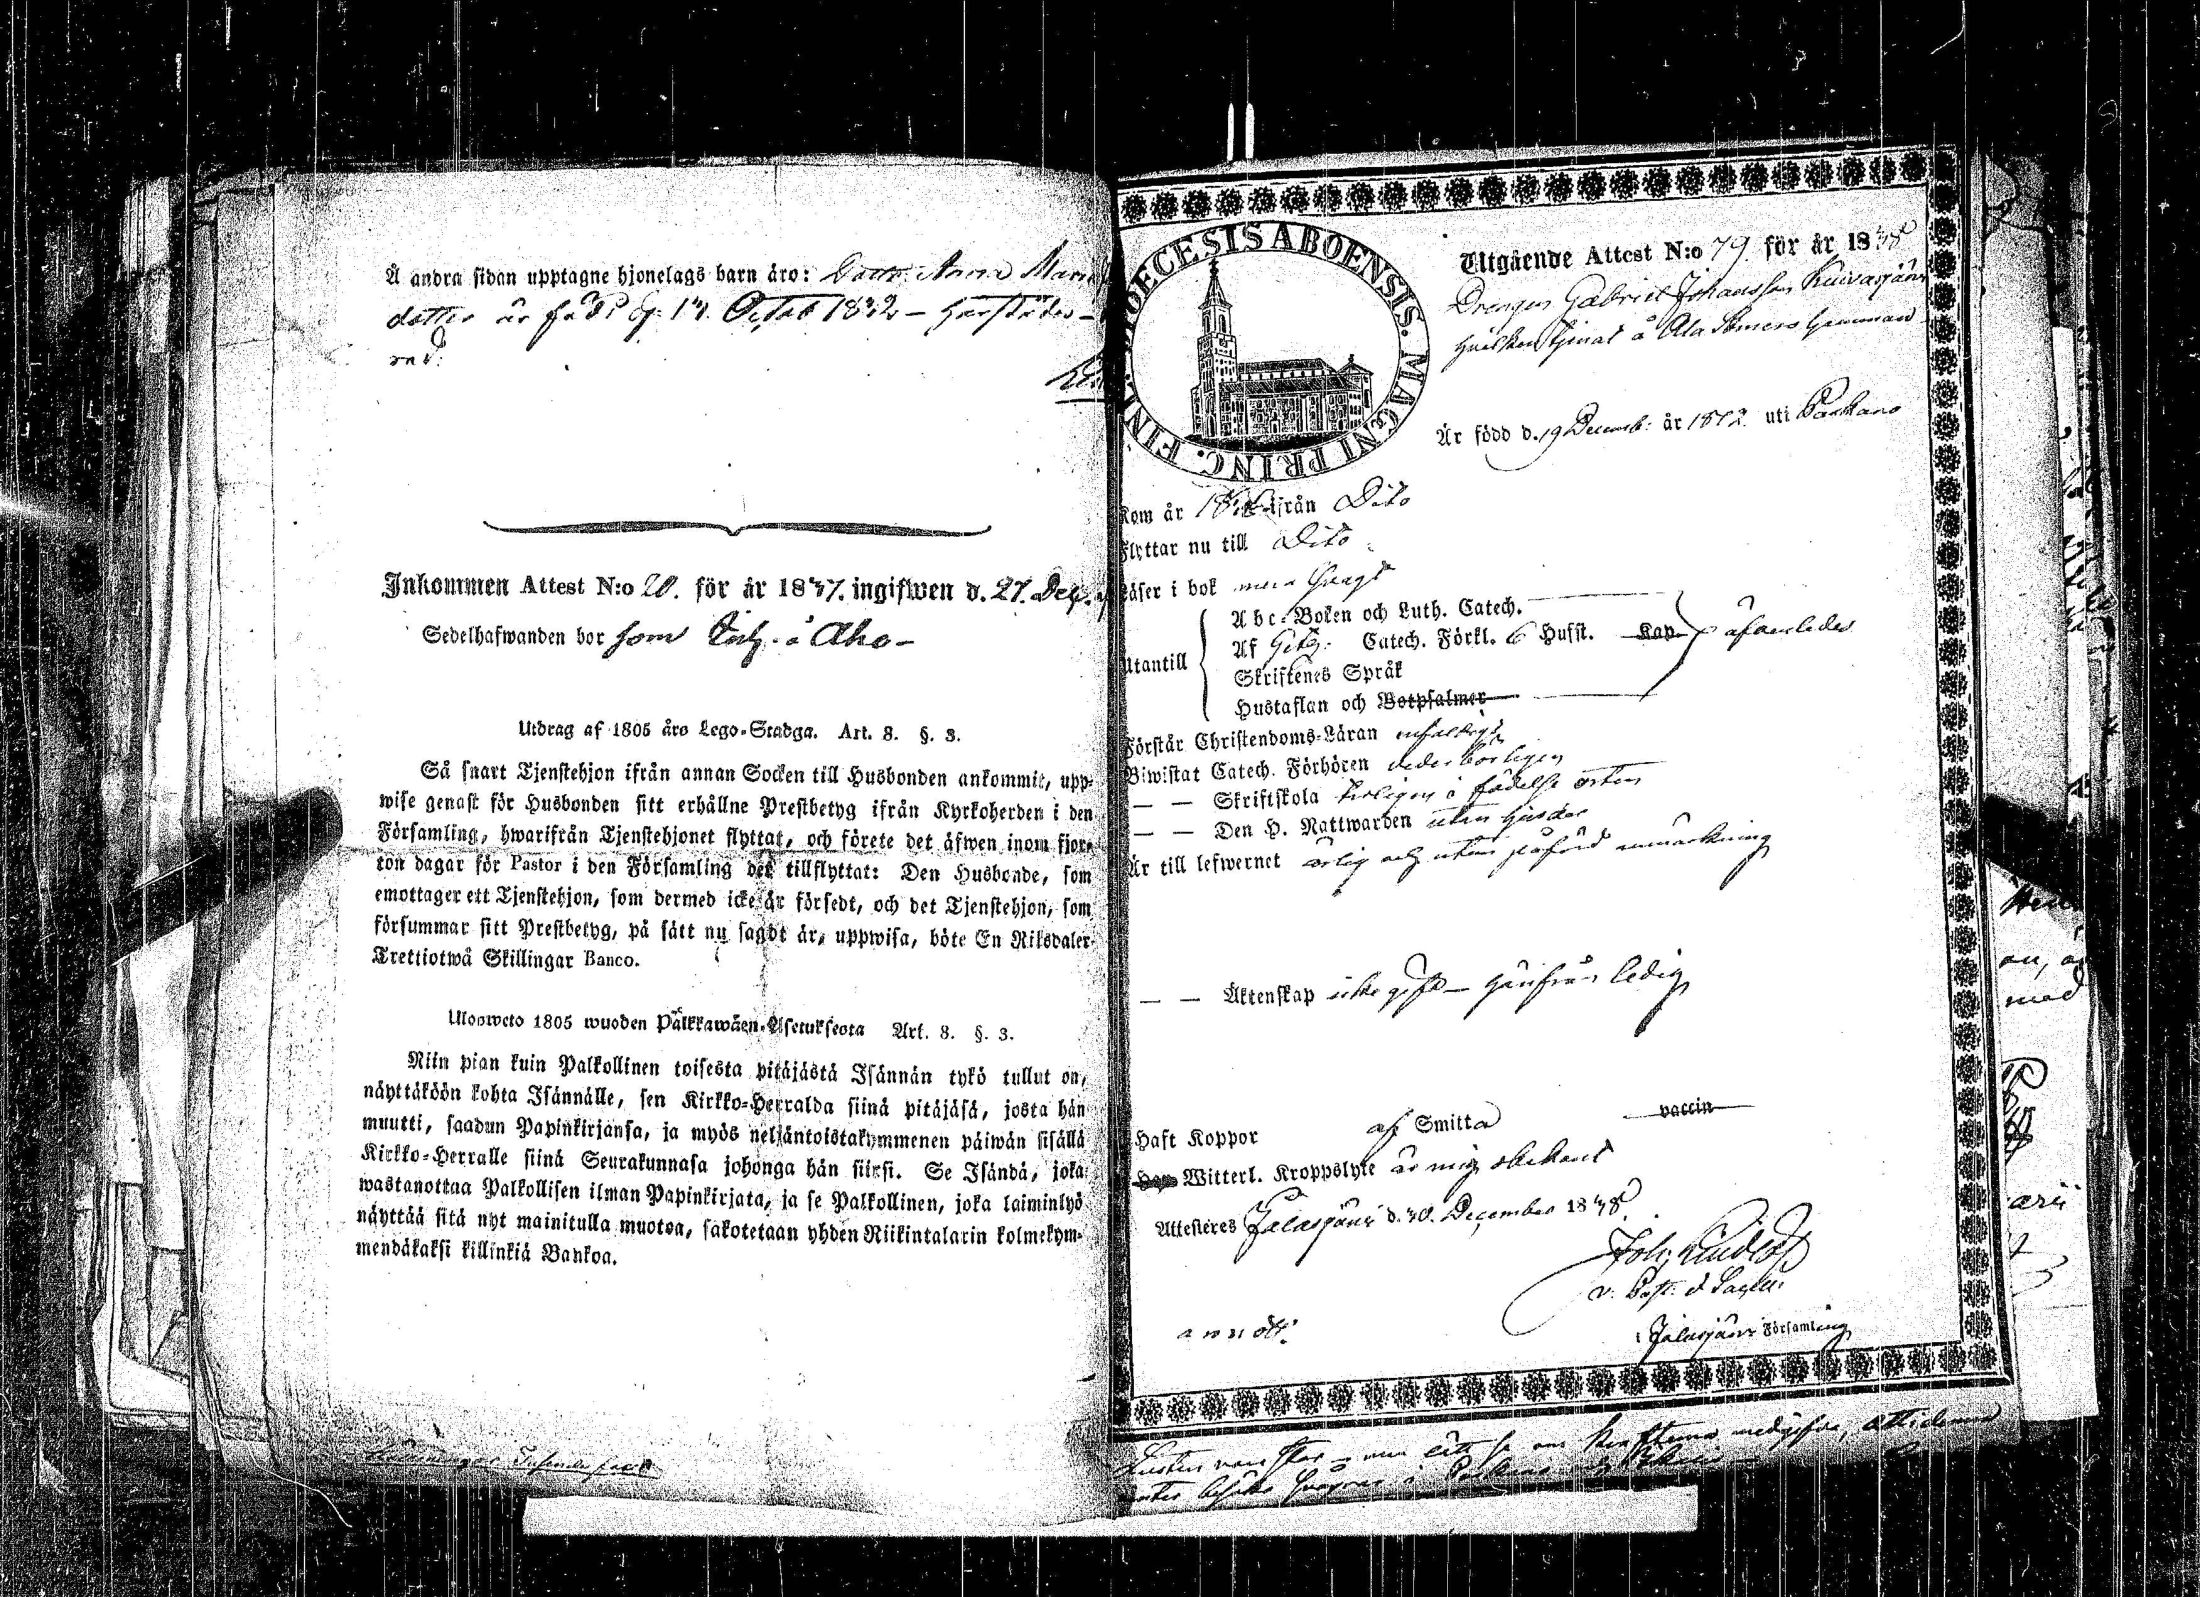 Å andra sidan upptagne hjonelags barn äro: Dottr. Anna Maria
dotter är född d. 14. Octob 1832 –
Inkommen Attest N:o 20. för år 1837. ingifwen d. 27. Dec.
Sedelhafwanden bor som Inh. å Aho –
Utdrag af 1805 års Lego-Stadga. Art. 8. §. 3.
Så snart Tjenstehjon ifrån annan Socken till Husbonden ankommit, upp-
wise genast för Husbonden sitt erhållne Prestbetyg ifrån Kyrkoherden i den
Församling, hwarifrån Tjenstehjonet flyttat, och förete det äfwen inom fjor-
ton dagar för Pastor i den Församling det tillflyttat: Den Husbonde, som
emottager ett Tjenstehjon, som dermed icke är försedt, och det Tjenstehjon, som
försummar sitt Prestbetyg, på sätt nu sagdt är, uppwisa, böte En Riksdaler
Trettiotwå Skillingar Banco.
Ulosweto 1805 wuoden Pälkkawäen-Asetuksesta Art. 8. §. 3.
Niin pian kuin Palkollinen toisesta pitäjästä Isännän tykö tullut on,
näyttäköön kohta Isännälle, sen Kirkko-Herralda siinä pitäjäsä, josta hän
muutti, saadun Papinkirjansa, ja myös neljäntoistakymmenen päiwän sisällä
Kirkko-Herralle siinä Seurakunnasa johonga hän siirsi. Se Isändä, joka
wastanottaa Palkollisen ilman Papinkirjata, ja se Palkollinen, joka laiminlyö
näyttää sitä nyt mainitulla muotoa, sakotetaan yhden Riikintalarin kolmekym-
mendäkaksi killinkiä Bankoa.
DIOECESIS ABOENSIS. MAGNI PRINC. FINL.
Utgående Attest N:o 79 för år 1838
Drengen Gabriel Johansson Kuivasjärvi
hvilken tjenat å Ala Somero hemman
Är född d. 19 Decemb: år 1812 uti Parkano
Kom år ifrån Dito
Flyttar nu till Dito
Läser i bok svagt
Utantill
Abc-Boken och Luth. Catech.
Af Catech. Förkl. 6 Hufst. Kap. äfvenledes
Skriftenes Språk
Hustaflan och Botpsalmer
Förstår Christendoms-Läran enfaldigt
Biwistat Catech. Förhören vederbörligen
— — Skriftskola troligen i födelse orten
— — Den H. Nattwarden utan hinder
Är till lefwernet ärlig och utan påförd anmärkning
— — Äktenskap icke gift – härifrån ledig
Haft Koppor af Smitta vaccin
Witterl. Kroppslyte är mig obekant
Attesteras Jalasjärvi d. 30. December 1838
Joh. Lindlöf
v. Past. & Sacell.
i Jalasjärvi Församling